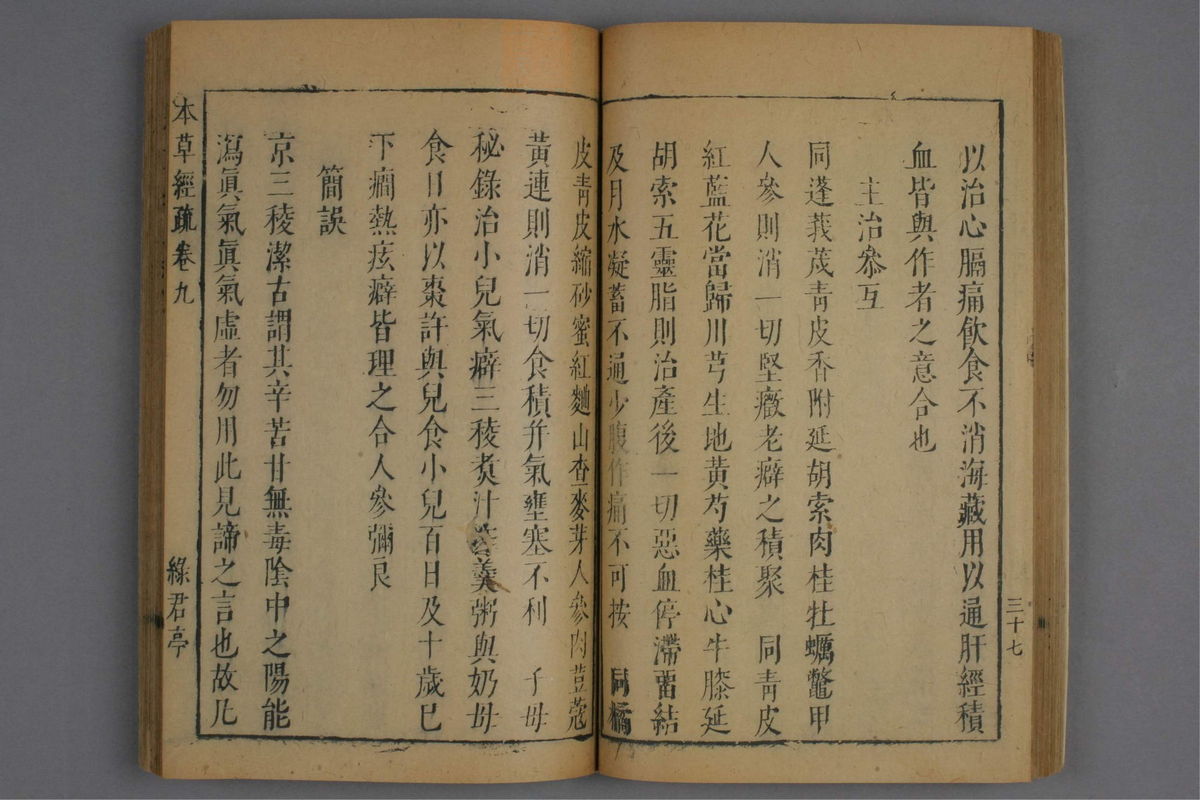 以治心膈痛飲食不消海藏用以通肝經積
血皆與作者之意合也
主治叅互
同蓬莪茂青皮香附延胡索肉桂牡蠣鼈甲
人參則消一切堅癥老癖之積聚 同青皮
紅藍花當歸川芎生地黃芍藥桂心牛膝延
胡索五靈脂則治產後一切惡血停滯畱結
及月水凝蓄不通少腹作痛不可按 同橘
皮青皮縮砂蜜紅麯山查麥芽人參肉荳蔻
黃連則消一切食積并氣壅塞不利 子母
秘錄治小兒氣癖三稜煑汁作羹粥與奶母
食日亦以棗許與兒食小兒百日及十歲巳
下癇熱痃癖皆理之合人參彌良
簡誤
京三稜潔古謂其辛苦甘無毒陰中之陽能
瀉眞氣眞氣虛者勿用此見諦之言也故凡
本草經疏 卷九
綠君亭
三十七